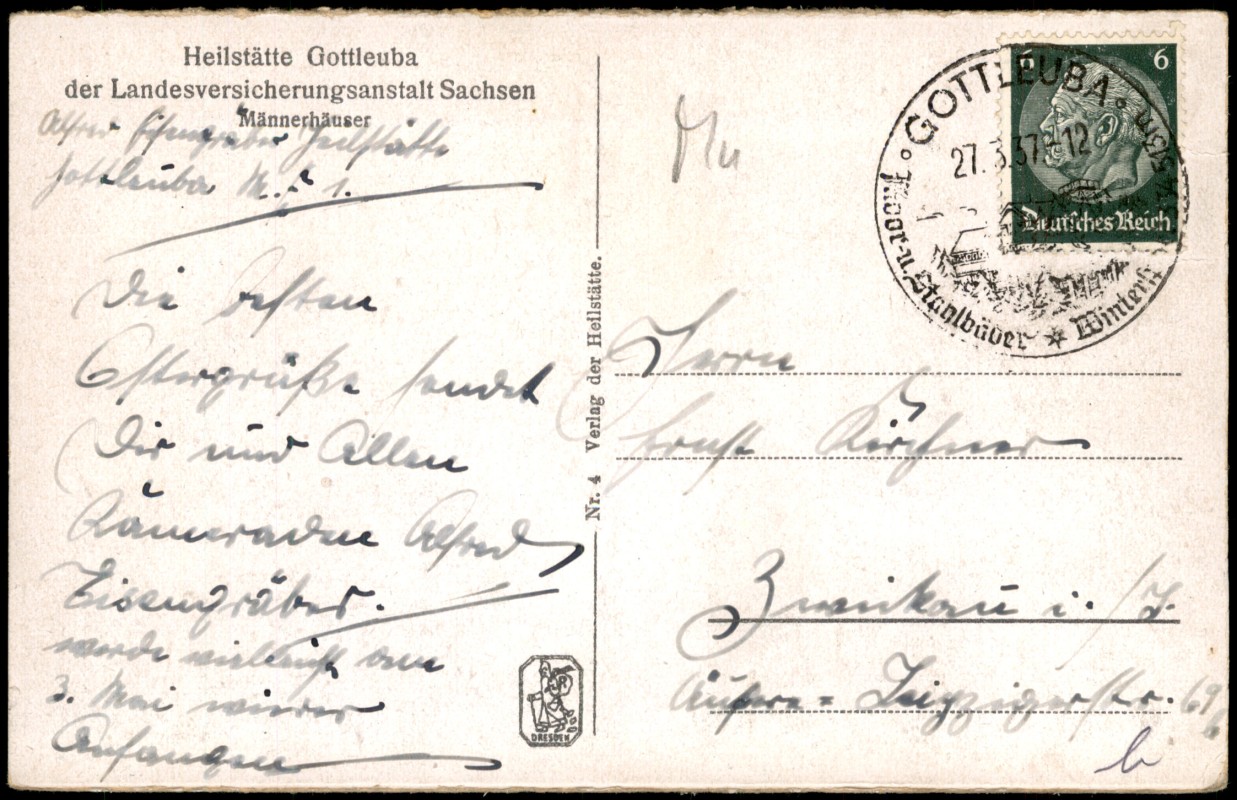 Heilstätte Gottleuba
der Landesversicherungsanstalt Sachsen
Männerhäuser
Alfred Eisengräber Heilstätte
Gottleuba M. 1.
Die besten
Ostergrüße sendet
Dir und Allen
Kameraden Alfred
Eisengräber.
werde vielleicht am
3. Mai wieder
Anfangen
Nr. 4 Verlag der Heilstätte.
DRESDEN
GOTTLEUBA
27.3.37 12
Moor-u. Stahlbäder
6 6
Deutsches Reich
Herrn
Ernst Kirchner
Zwickau i./S.
Äußere-Leipzigerstr. 69